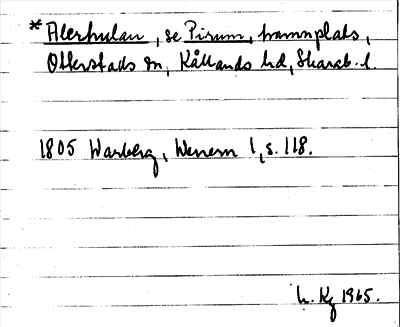 *Alerhulan, se Pirum, hamnplats,
Otterstads sn, Kållands hd, Skarab. l.
1805 Warberg, Wenern 1, s. 118.
h. Kg 1965.